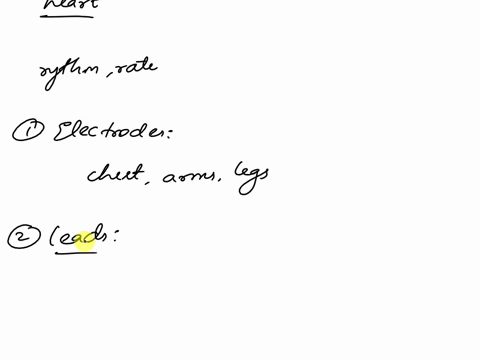 heart
rythm, rate
① Electrodes:
chest, arms, legs
② Leads: